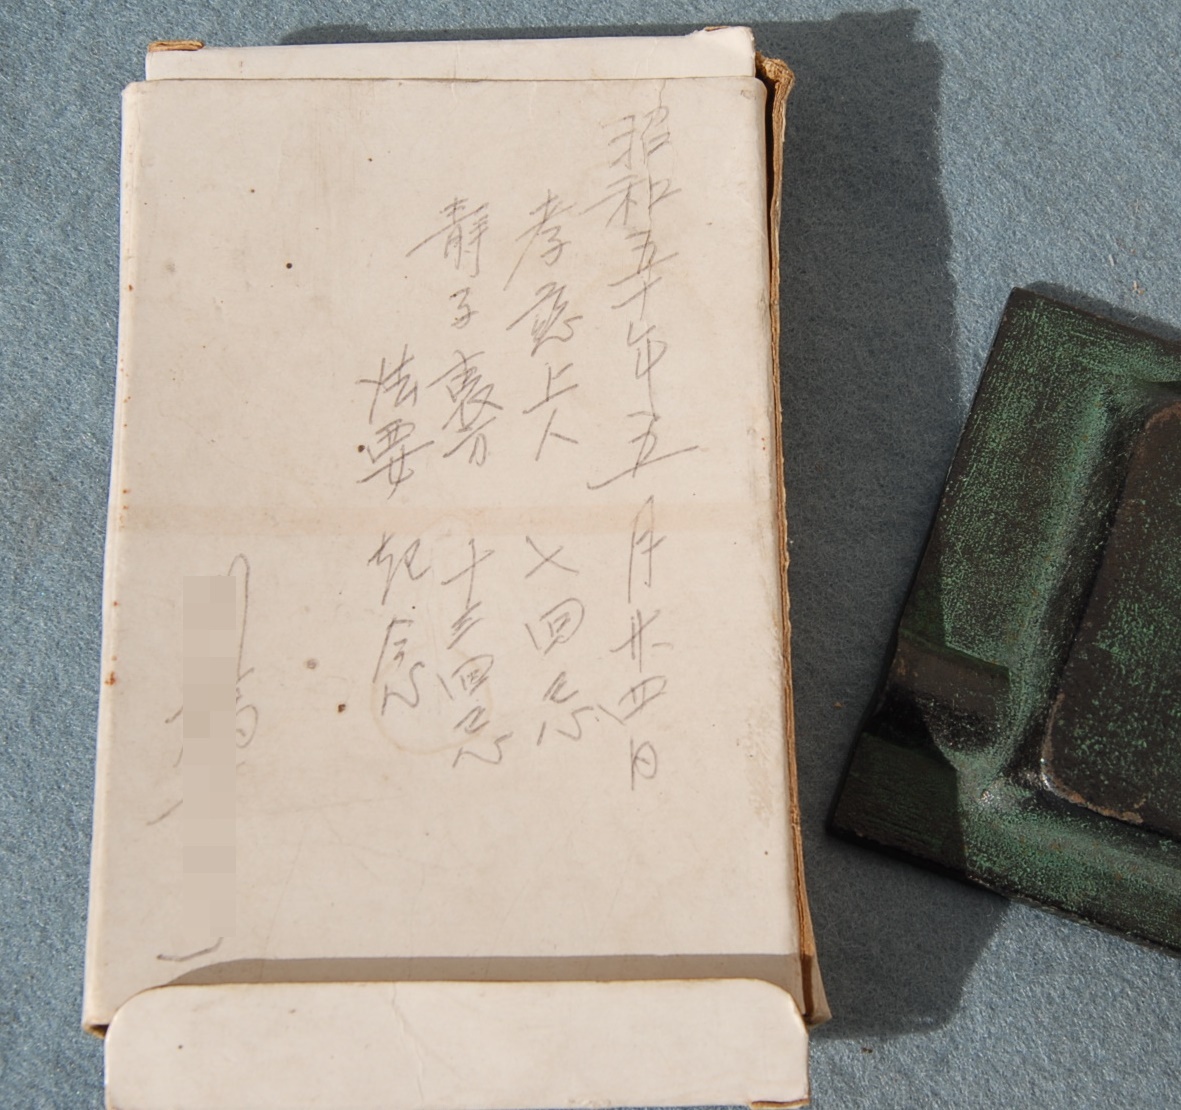 昭和五十年五月廿四日
孝慈上人 七回忌
静子裏方 十三回忌
法要 記念